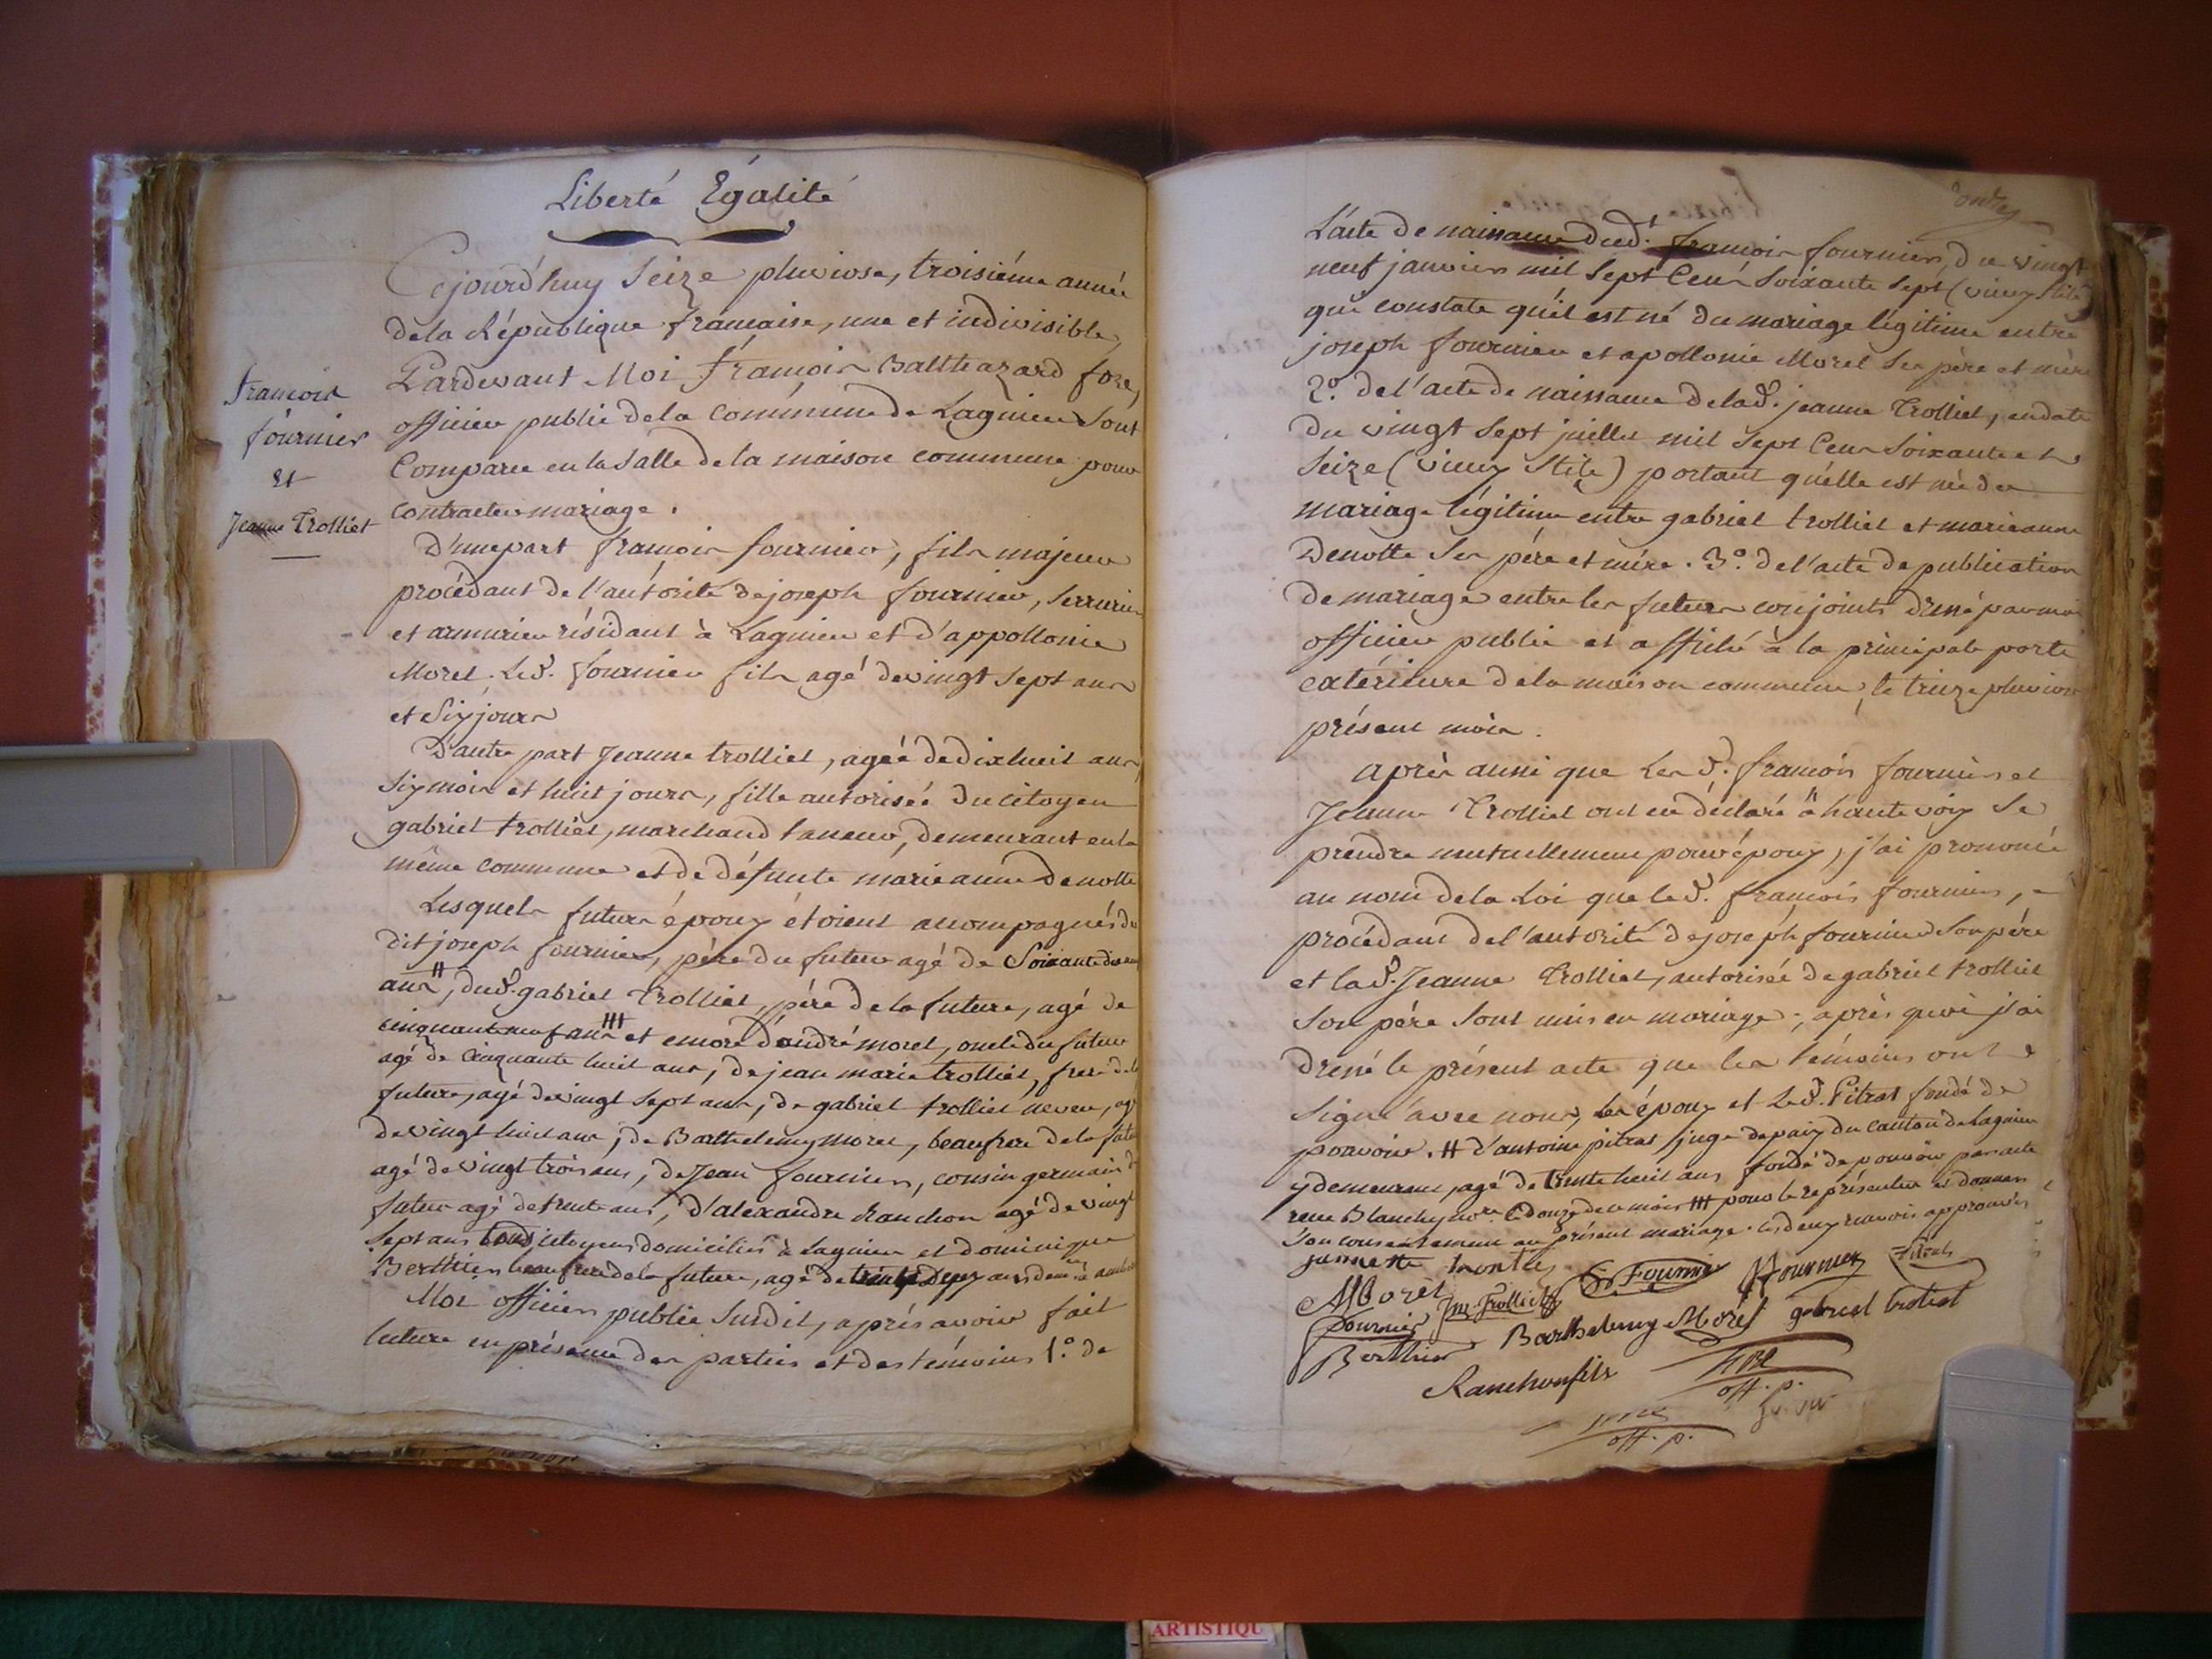 Liberté Egalité
Cejourd'huy Seize pluviose, troisiéme année
de la République française, une et indivisible
Pardevant Moi françois Balthazard fore,
officier public de la Commune de Lagnieu Sont
Comparu en la Salle de la maison commune pour
contracter mariage.
françois
fournier
Et
Jeanne Trolliet
D'une part françois fournier, fils majeur
procédant de l'autorité de joseph fournier, Serrurier
et armurier résidant à Lagnieu et d'appollonie
Morel. Led. fournier fils agé de vingt Sept ans
et Six jours
D'autre part Jeanne trolliet, agée de dixhuit ans,
Six mois et huit jours, fille autorisée du citoyen
gabriel trolliet, marchand taneur, demeurant en la
même commune et de défunte marieanne Denotte
Lesquels futurs époux étoient accompagnés du
dit joseph fournier, père du futur agé de Soixante dix
ans, dud. gabriel Trolliet, père de la future, agé de
cinquante neuf ans et encore d'andré morel, oncle du futur
agé de Cinquante huit ans, de jean marie trolliet, frere de la
future, agé de vingt Sept ans, de gabriel trolliet neveu, agé
de vingt huit ans, de Barthelemy Morel, beaufrere de la future
agé de vingt trois ans, de Jean fournier, cousin germain du
futur agé de trente ans, d'alexandre Ranchon agé de vingt
Sept ans tous citoyens domiciliés à Lagnieu et dominique
Berthier beaufrere de la future, agé de trente Deux ans
Moi officier public Susdit, aprés avoir fait
lecture en présence des parties et des témoins 1.° de
L'acte de naissance dud.t françois fournier, du vingt
neuf janvier mil Sept Cent Soixante Sept (vieux Stile)
qui constate qu'il est né du mariage légitime entre
joseph fournier et apollonie Morel Ses père et mère
2.° de l'acte de naissance de lad. jeanne Trolliet, en date
du vingt Sept juillet mil Sept Cent Soixante et
Seize (vieux Stile) portant qu'elle est née du
mariage légitime entre gabriel trolliet et marieanne
Denotte Ses pére et mére. 3.° de l'acte de publication
de mariage entre les futurs conjoints dressé par moi
officier public et affiché à la principale porte
extérieure de la maison commune, le treize pluviose
présent mois.
après aussi que Les d. françois fournier et
Jeanne Trolliet ont eu déclaré à haute voix Se
prendre mutuellement pour époux, j'ai prononcé
au nom de la Loi que led. françois fournier,
procédant de l'autorité de joseph fournier Son pére
et lad. Jeanne Trolliet, autorisée de gabriel trolliet
Son pére Sont unis en mariage; après quoi j'ai
dressé le présent acte que les témoins ont
Signé avec nous, les époux et Led. Pitrat fondé de
pouvoir. # d'antoine pitrat juge de paix du canton de Lagnieu
y demeurant, agé de trente huit ans fondé de pouvoir par acte
reçu Blanchy no.re le douze de ce mois ### pour le représenter et donner
Son consentement au présent mariage. les deux renvois approuvés
AMorel Jne Trolliet Fournier JFournier Pitrat
fournier Barthelemy Morel gabriel trolliet
Berthier
Ranchon fils fore
off. p.
fore
off. p.